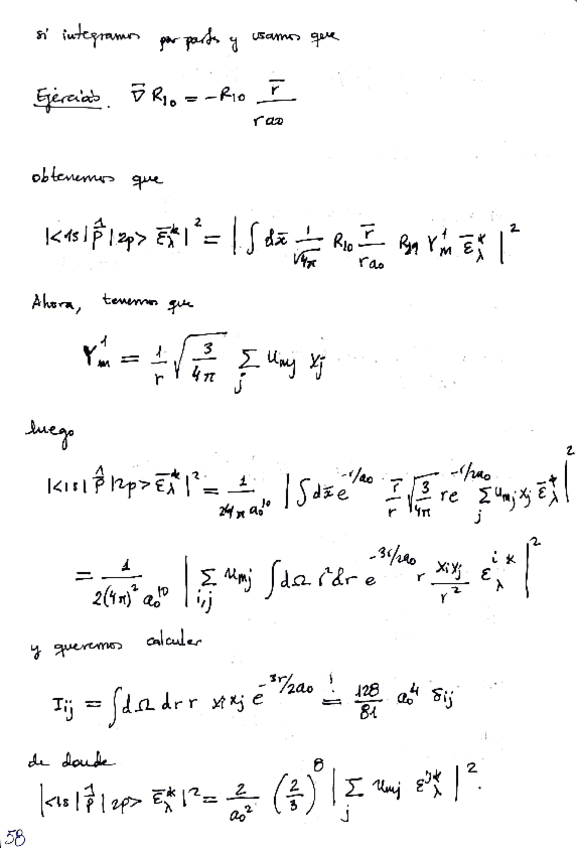 si integramos por partes y usamos que
Ejercicio. ∇̄ R₁₀ = -R₁₀ r̄ / ra₀
obtenemos que
|<1s| P̂ |2p> ε̄*_λ|² = | ∫ dx̄ 1/√4π R₁₀ r̄/ra₀ R₂₁ Y¹_m ε̄*_λ |²
Ahora, tenemos que
Y¹_m = 1/r √(3/4π) Σ_j u_mj x_j
luego
|<1s| P̂ |2p> ε̄*_λ|² = 1/24π a₀¹⁰ | ∫ dx̄ e^(-r/a₀) r̄/r √(3/4π) r e^(-r/2a₀) Σ_j u_mj x_j ε̄*_λ |²
= 1/2(4π)² a₀¹⁰ | Σ_i,j u_mj ∫ dΩ r² dr e^(-3r/2a₀) r x_i x_j/r² ε^i*_λ |²
y queremos calcular
I_ij = ∫ dΩ dr r x_i x_j e^(-3r/2a₀) =! 128/81 a₀⁴ δ_ij
de donde
|<1s| P̂ |2p> ε̄*_λ|² = 2/a₀² (2/3)⁸ | Σ_j u_mj ε^j*_λ |².
58